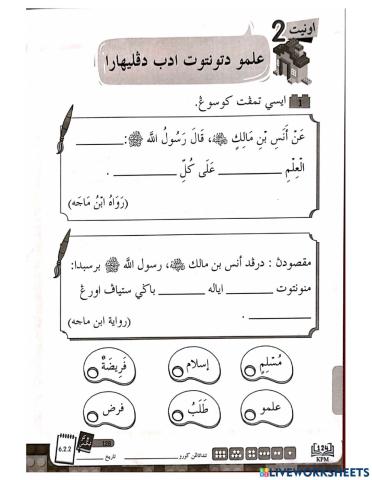 اونيت 2
علمو دتونتوت ادب دڤليهارا
1 ايسي تمڤت كوسوڠ.
عَنْ أَنَسِ بْنِ مَالِكٍ ﵁، قَالَ رَسُولُ اللَّهِ ﷺ: ________
الْعِلْمِ ________ عَلَى كُلِّ ________ .
(رَوَاهُ ابْنُ مَاجَه)
مقصودڽ : درڤد أنس بن مالك ﵁، رسول الله ﷺ برسبدا:
منونتوت ________ اياله ________ باݢي ستياڤ اورڠ
________ .
(رواية ابن ماجه)
مُسْلِمٍ
إسلام
فَرِيضَةٌ
علمو
طَلَبُ
فرض
6.2.2
128
تاريخ
124
KPM
LIVEWORKSHEETS